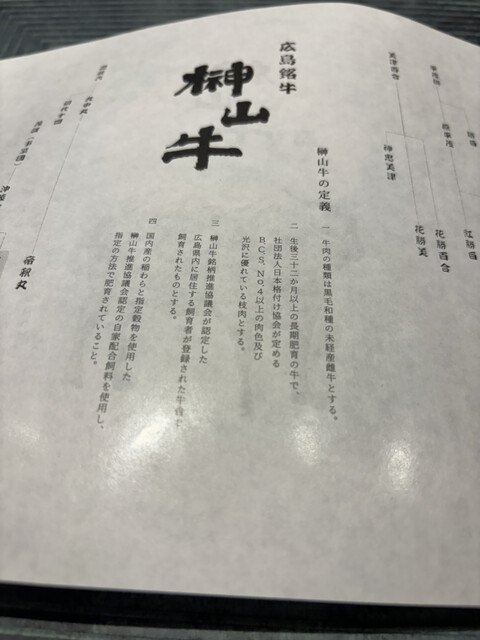 広島銘牛
榊山牛
榊山牛の定義
一 牛肉の種類は黒毛和種の未経産雌牛とする。
二 生後三十二か月以上の長期肥育の牛で、
社団法人日本格付け協会が定める
B.C.S. No.4以上の肉色及び
光沢に優れている枝肉とする。
三 榊山牛銘柄推進協議会が認定した
広島県内に居住する飼育者が登録された牛舎で
飼育されたものとする。
四 国内産の稲わらと指定穀物を使用した
榊山牛推進協議会認定の自家配合飼料を使用し、
指定の方法で肥育されていること。
美津百合
神恵美津
花勝百合
花勝美
江勝百
帝釈丸